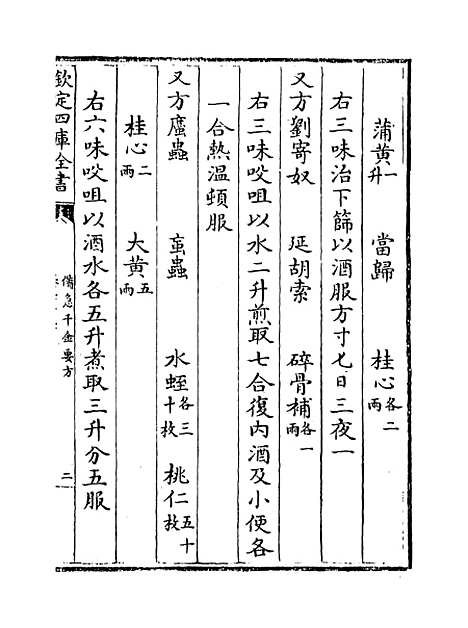 蒲黄一升 當歸 桂心各二兩
右三味治下篩以酒服方寸匕日三夜一
又方劉寄奴 延胡索 碎骨補各一兩
右三味㕮咀以水二升煎取七合復内酒及小便各
一合熱温頓服
又方䗪蟲 䖟蟲 水蛭各三十枚 桃仁五十枚
桂心二兩 大黄五兩
右六味㕮咀以酒水各五升煮取三升分五服
欽定四庫全書
備急千金要方
二